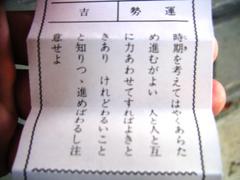 運勢 吉
時期を考えてはやくあらた
め進むがよい 人と人と互
に力あわせてすればよきと
きあり けれどわるいこと
と知りつゝ進めばわるし注
意せよ